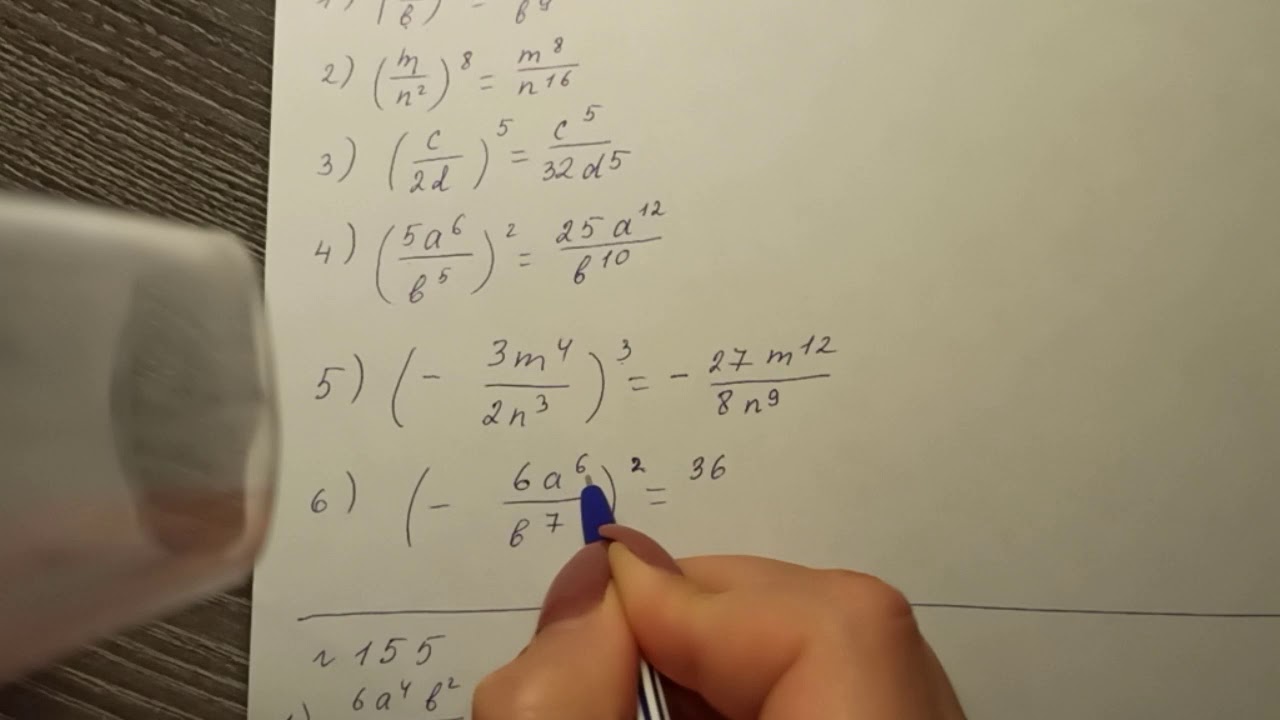 1) (/в) = в⁹
2) (m/n²)⁸ = m⁸/n¹⁶
3) (c/2d)⁵ = c⁵/32d⁵
4) (5a⁶/в⁵)² = 25a¹²/в¹⁰
5) (- 3m⁴/2n³)³ = - 27m¹²/8n⁹
6) (- 6a⁶/в⁷)² = 36
N 155
1) 6a⁴в²